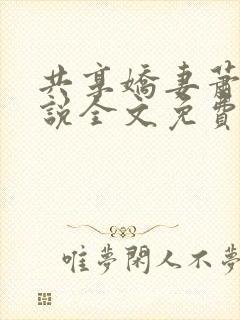 共享嬌妻蕭
說全文免費
唯夢閑人不夢